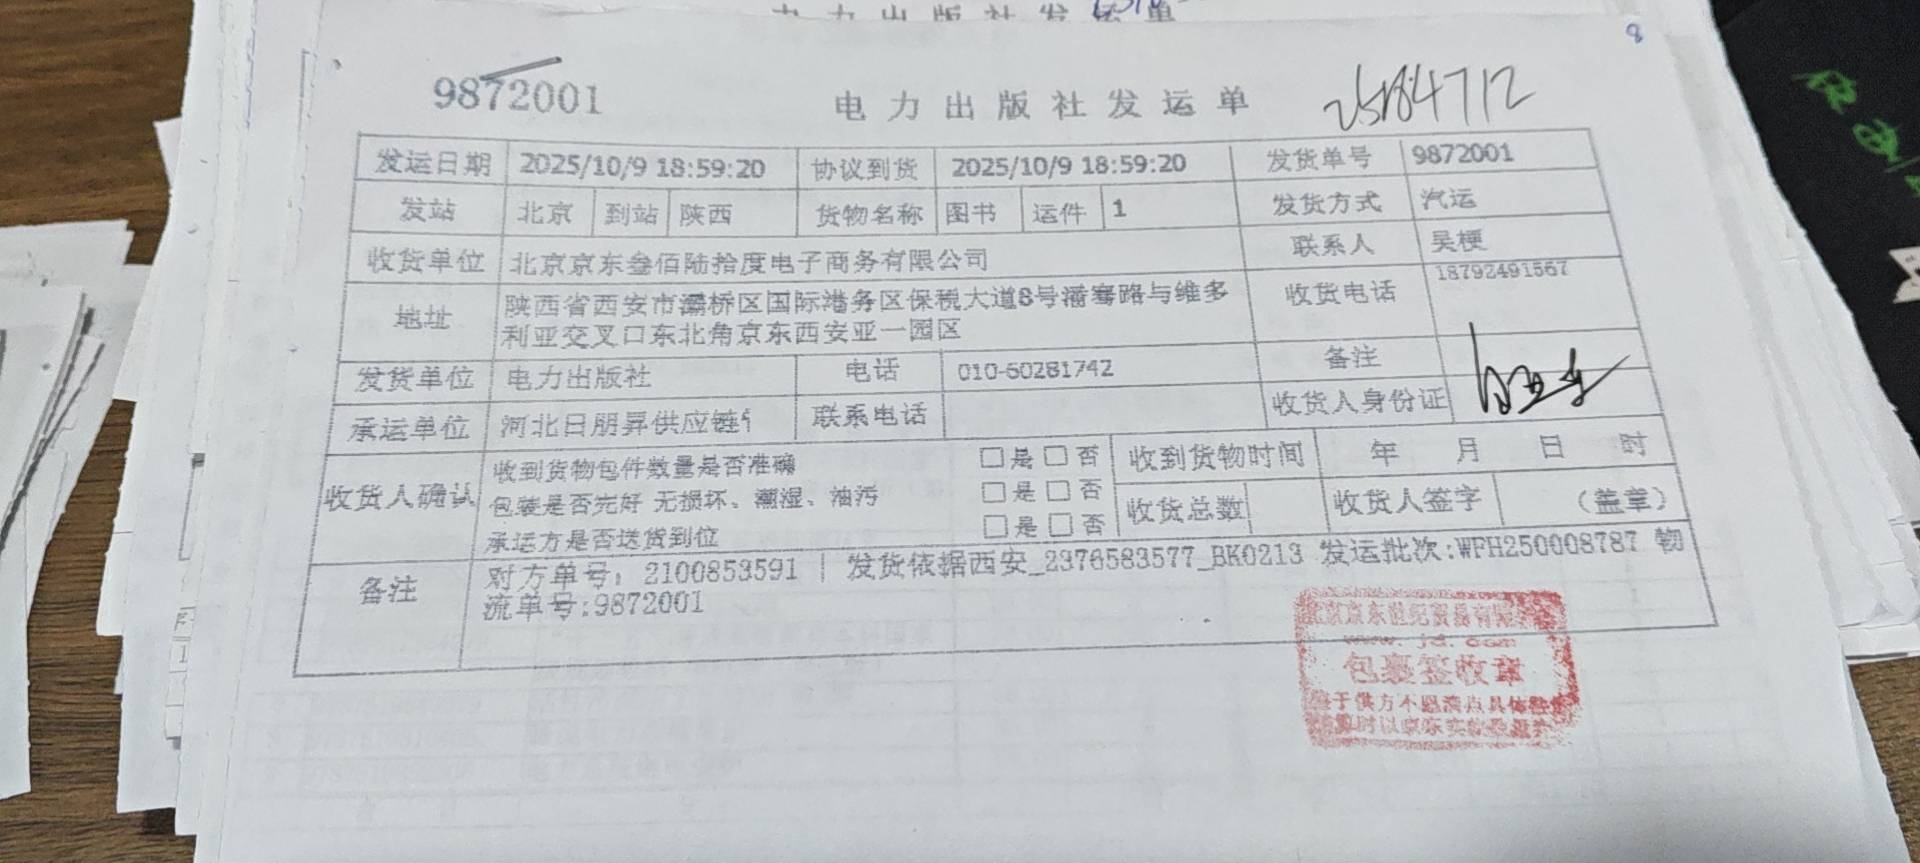 电力出版社发运单
8
9872001 电力出版社发运单 25184712
发运日期 2025/10/9 18:59:20 协议到货 2025/10/9 18:59:20 发货单号 9872001
发站 北京 到站 陕西 货物名称 图书 运件 1 发货方式 汽运
收货单位 北京京东叁佰陆拾度电子商务有限公司 联系人 吴梗
地址 陕西省西安市灞桥区国际港务区保税大道8号潘骞路与维多
利亚交叉口东北角京东西安亚一园区
收货电话 18792491567
发货单位 电力出版社 电话 010-60281742 备注
承运单位 河北日朋昇供应链 联系电话 收货人身份证
收货人确认 收到货物包件数量是否准确 □是 □否 收到货物时间 年 月 日 时
包装是否完好 无损坏、潮湿、油污 □是 □否 收货总数 收货人签字 (盖章)
承运方是否送货到位 □是 □否
备注 对方单号: 2100853591 | 发货依据西安_2376583577_BK0213 发运批次:WFH250008787 物
流单号:9872001
北京京东世纪贸易有限
www.jd.com
包裹签收章